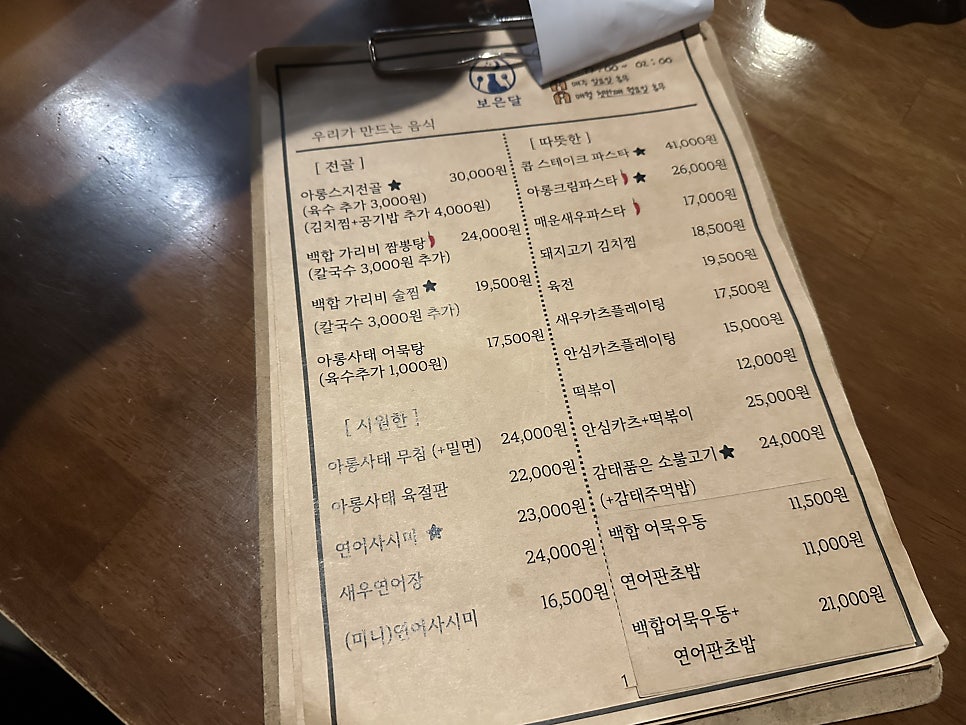 보은달
00 ~ 02:00
매주 일요일 휴무
매월 첫번째 월요일 휴무
우리가 만드는 음식
[ 전골 ]
아롱스지전골 ★ 30,000원
(육수 추가 3,000원)
(김치찜+공기밥 추가 4,000원)
백합 가리비 짬뽕탕 24,000원
(칼국수 3,000원 추가)
백합 가리비 술찜 ★ 19,500원
(칼국수 3,000원 추가)
아롱사태 어묵탕 17,500원
(육수추가 1,000원)
[ 시원한 ]
아롱사태 무침 (+밀면) 24,000원
아롱사태 육절판 22,000원
연어사시미 ★ 23,000원
새우연어장 24,000원
(미니)연어사시미 16,500원
[ 따뜻한 ]
콥 스테이크 파스타 ★ 41,000원
아롱크림파스타 ★ 26,000원
매운새우파스타 17,000원
돼지고기 김치찜 18,500원
육전 19,500원
새우카츠플레이팅 17,500원
안심카츠플레이팅 15,000원
떡볶이 12,000원
안심카츠+떡볶이 25,000원
감태품은 소불고기 ★ 24,000원
(+감태주먹밥)
백합 어묵우동 11,500원
연어판초밥 11,000원
백합어묵우동+ 21,000원
연어판초밥
1